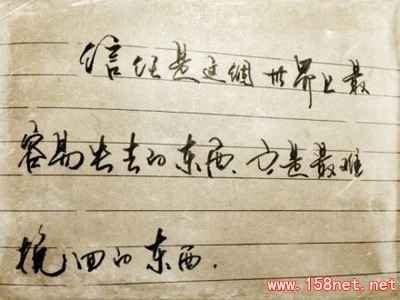 信任是这個世界上最
容易失去的东西,也是最难
挽回的东西.
www.158net.net